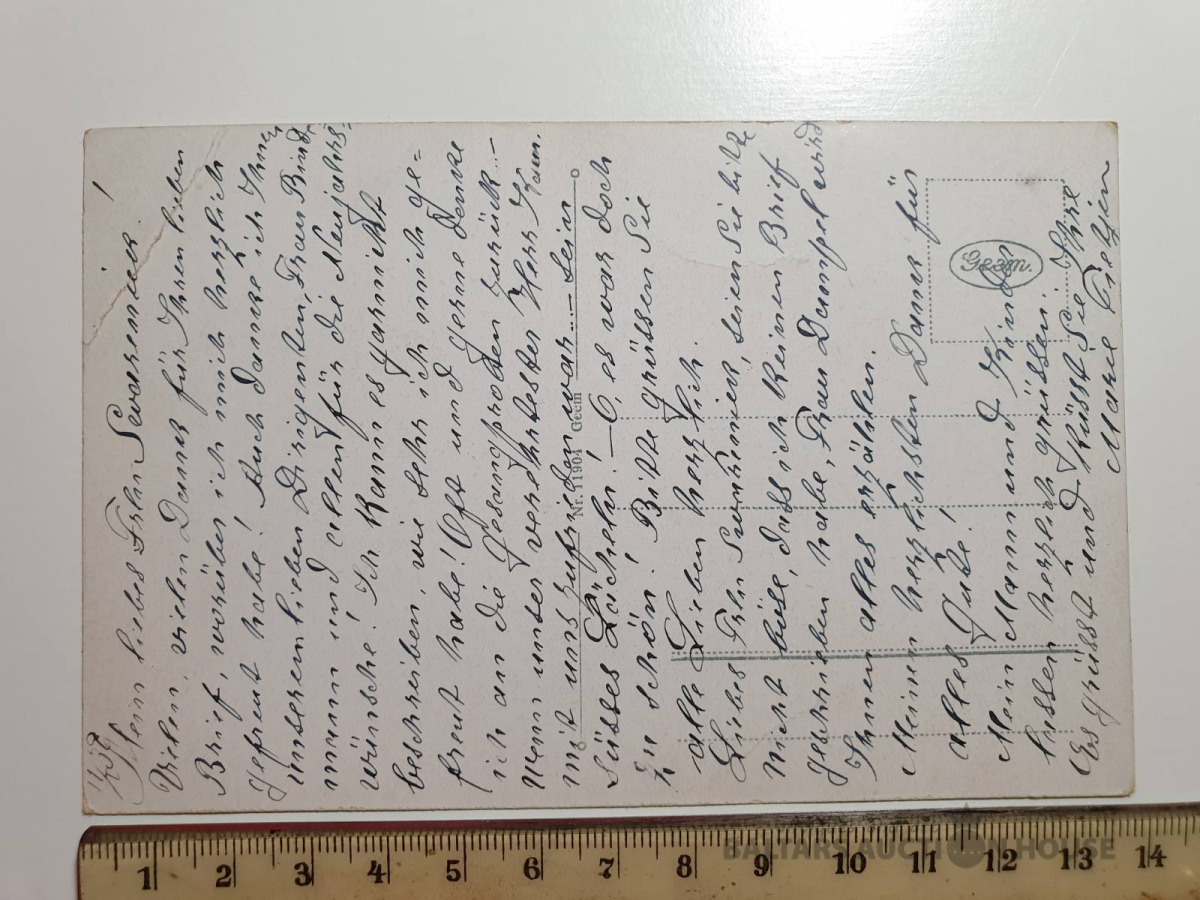 Mein liebes Frln Swarenieck!
Vielen, vielen Dank für Ihren lieben
Brief, worüber ich mich herzlich
gefreut habe! Auch danke ich Ihnen
unserem lieben Dirigenten, Frau Bind-
mann und allen für die Neujahrs-
wünsche! Ich kann es garnicht
beschreiben, wie sehr ich mich ge=
freut habe! Oft und gerne denke
ich an die Gesangproben zurück.–
Wenn unser verehrtester Herr
mit uns zufrieden war... – sein
süsses Lächeln! – O, es war doch
zu schön! Bitte grüssen Sie
alle Lieben herzlich.
Liebes Frln, seien Sie bitte
nicht böse, dass ich keinen Brief
geschrieben habe, Frau Dampel wird
Ihnen alles erzählen.
Meinen herzlichsten Dank für
alles Gute!
Mein Mann und Kinder
lassen herzlich grüssen.
Es grüsst und küsst Sie Ihre
Marie
Nr. 11904 Geem
Geem.
BALTARS AUCTION HOUSE
1 2 3 4 5 6 7 8 9 10 11 12 13 14